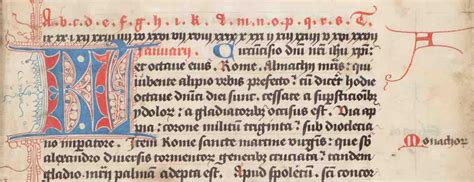 A b c d e f g h i k l m n o p q r s t
Ianuarii Circūcisio dn̄i nr̄i ihū xp̄i:
et octaue eius. Rome. Almachij mr̄is: qui
iubente alipio vrbis prefecto: cū dicēt hodie
octaue dn̄ici diei sunt. cessate a supsticiōibꝫ
ydoloꝝ: a gladiatoribꝫ occisus est. Via ap
pia: corone militū triginta: sub dioclecia
no imperatore. Item Rome sancte martine virgīs: que sb
alexandro diuersis tormentoꝝ generibꝫ cruciata: tandem
gladio mr̄ij palmā adepta est. Apud spoletū. sancti con
A
Monachoꝝ